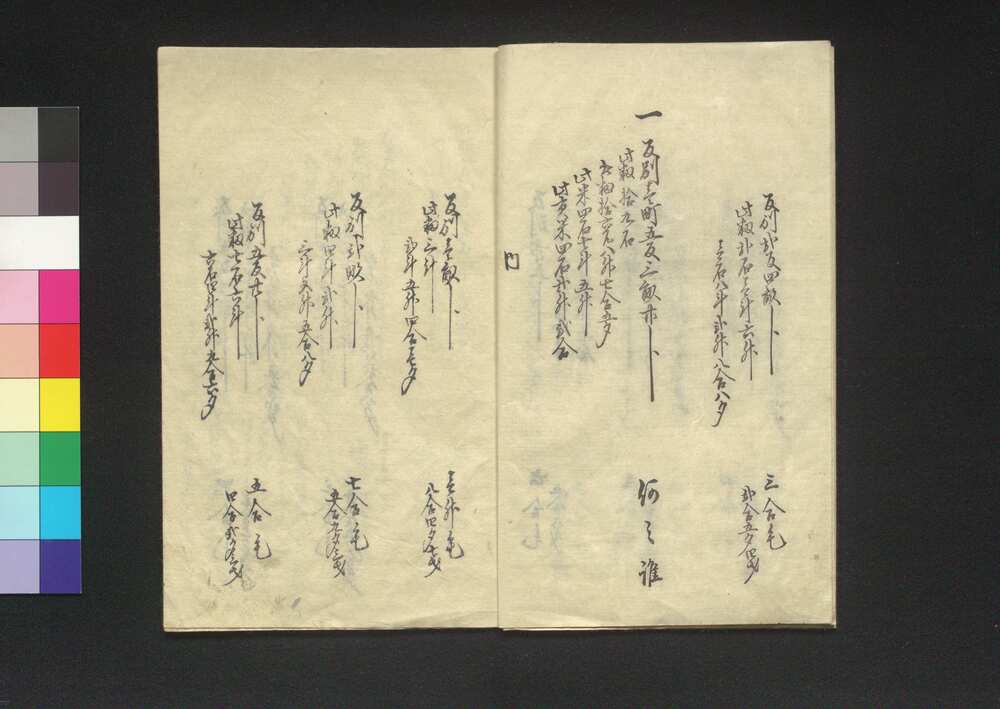 反別弐反四畝
此籾弐石壱斗六升
壱石八斗弐升八合八夕
三合毛
弐合五夕四才
一 反別壱町五反三畝廿
何之誰
此籾拾九石
此米四石七斗五升
此貢米四石弐升弐合
内
反別壱畝
此籾三斗
弐斗五升四合壱夕
壱升毛
八合四夕七才
反別弐畝
此籾四斗弐升
三斗五升五合八夕
七合毛
五合九夕三才
反別五反廿
此籾七石六斗
六石四斗弐升九合六夕
五合毛
四合弐夕三才